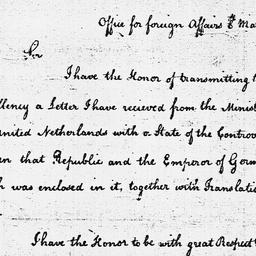 Office for foreign Affairs 8th Ma
Sir
I have the Honor of transmitting
llency a Letter I have recieved from the Minis
united Netherlands with a State of the Controv
en that Republic and the Emperor of Germ
h was enclosed in it, together with Translati
I have the Honor to be with great Respect